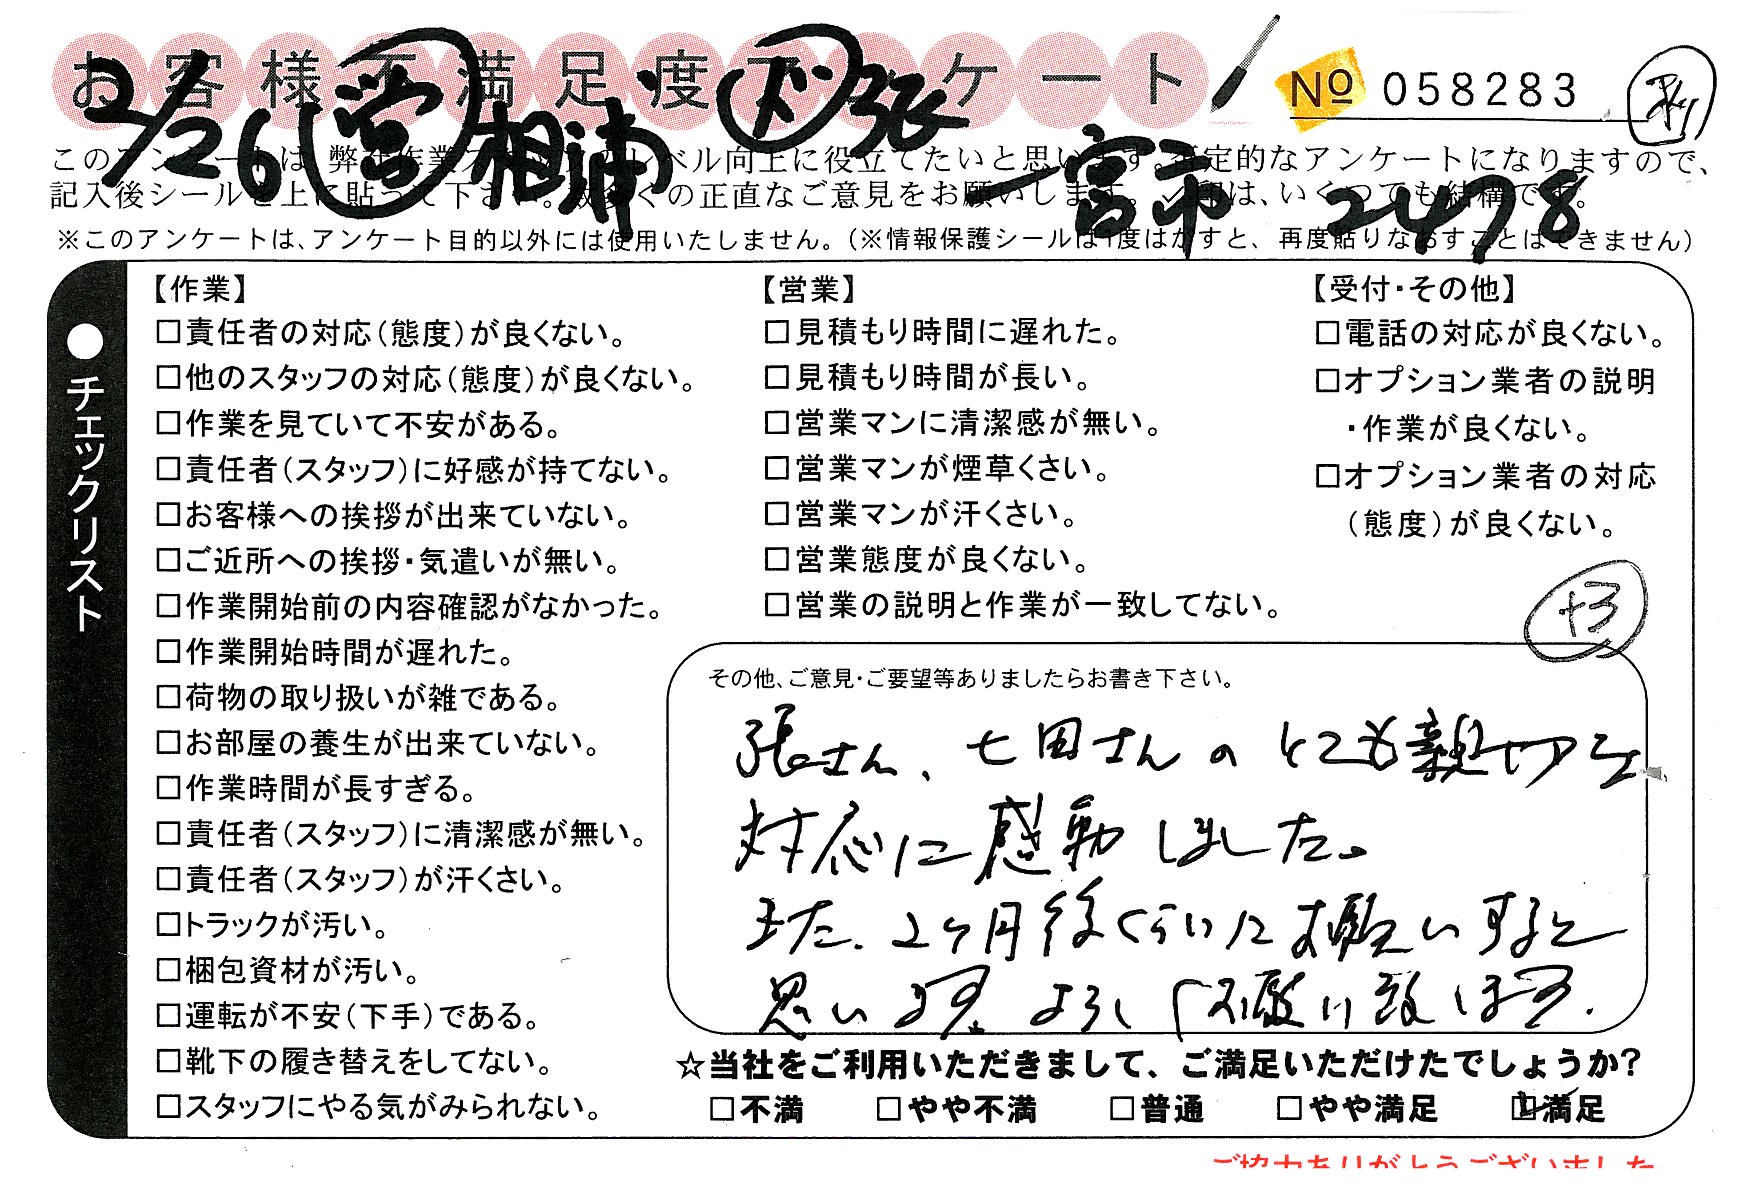 お客様不満足度アンケート
№ 058283
2/26 営 相浦 下 張
一宮市 2478
このアンケートは、弊社作業スタッフのレベル向上に役立てたいと思います。否定的なアンケートになりますので、
記入後シールを上に貼って下さい。数多くの正直なご意見をお願いします。✓印は、いくつでも結構です。
※このアンケートは、アンケート目的以外には使用いたしません。(※情報保護シールは1度はがすと、再度貼りなおすことはできません)
●チェックリスト
【作業】
□責任者の対応(態度)が良くない。
□他のスタッフの対応(態度)が良くない。
□作業を見ていて不安がある。
□責任者(スタッフ)に好感が持てない。
□お客様への挨拶が出来ていない。
□ご近所への挨拶・気遣いが無い。
□作業開始前の内容確認がなかった。
□作業開始時間が遅れた。
□荷物の取り扱いが雑である。
□お部屋の養生が出来ていない。
□作業時間が長すぎる。
□責任者(スタッフ)に清潔感が無い。
□責任者(スタッフ)が汗くさい。
□トラックが汚い。
□梱包資材が汚い。
□運転が不安(下手)である。
□靴下の履き替えをしてない。
□スタッフにやる気がみられない。
【営業】
□見積もり時間に遅れた。
□見積もり時間が長い。
□営業マンに清潔感が無い。
□営業マンが煙草くさい。
□営業マンが汗くさい。
□営業態度が良くない。
□営業の説明と作業が一致してない。
【受付・その他】
□電話の対応が良くない。
□オプション業者の説明
・作業が良くない。
□オプション業者の対応
(態度)が良くない。
+3
その他、ご意見・ご要望等ありましたらお書き下さい。
張さん、七田さんのとても親切な
対応に感動しました。
また、2ヶ月後くらいにお願いすると
思います。よろしくお願い致します.
☆当社をご利用いただきまして、ご満足いただけたでしょうか?
□不満 □やや不満 □普通 □やや満足 ☑満足
ご協力ありがとうございました